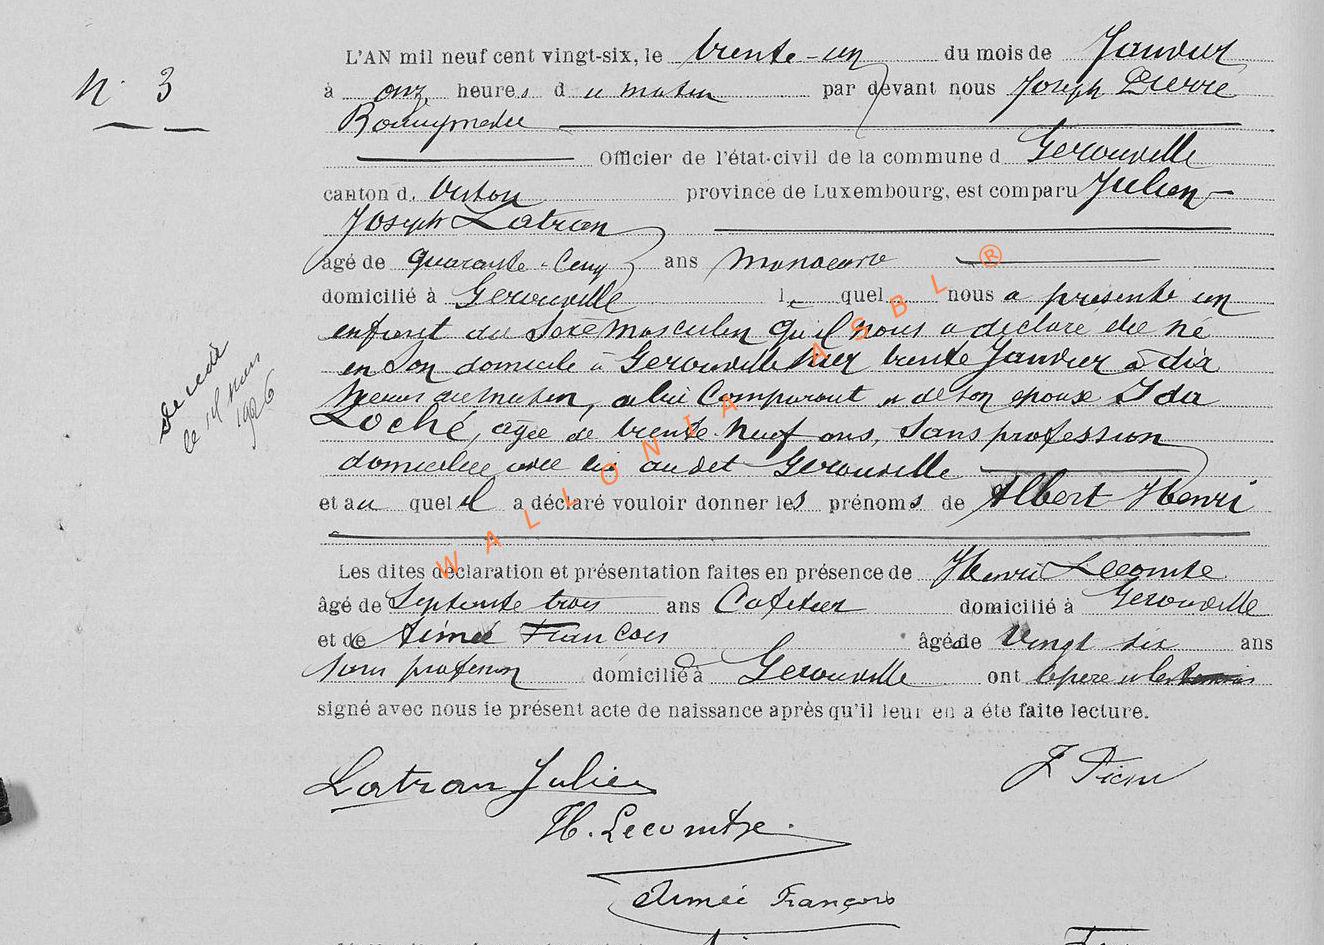 N° 3
L'AN mil neuf cent vingt-six, le trente-un du mois de Janvier
à onze heures du matin par devant nous Joseph Pierre
Officier de l'état-civil de la commune d Gerouville
canton d. Virton province de Luxembourg, est comparu Julien
Joseph Latran
âgé de quarante-cinq ans manoeuvre
domicilié à Gerouville lequel nous a présenté un
enfant du sexe masculin qu'il nous a déclaré être né
en son domicile à Gerouville hier trente Janvier à dix
heures du matin, de lui Comparant et de son épouse Ida
Loché, âgée de trente-neuf ans, sans profession
domiciliée avec lui au dit Gerouville
et auquel il a déclaré vouloir donner les prénoms de Albert Henri
Les dites déclaration et présentation faites en présence de Henri Lecomte
âgé de Septante trois ans Cafetier domicilié à Gerouville
et de Aimé François âgé de Vingt six ans
sans profession domicilié à Gerouville ont le père et les témoins
signé avec nous le présent acte de naissance après qu'il leur en a été faite lecture.
décédé
le 14 mars
1926
WALLONIA ASBL ®
Latran Julien
J Pierre
H. Lecomte.
Aimé François